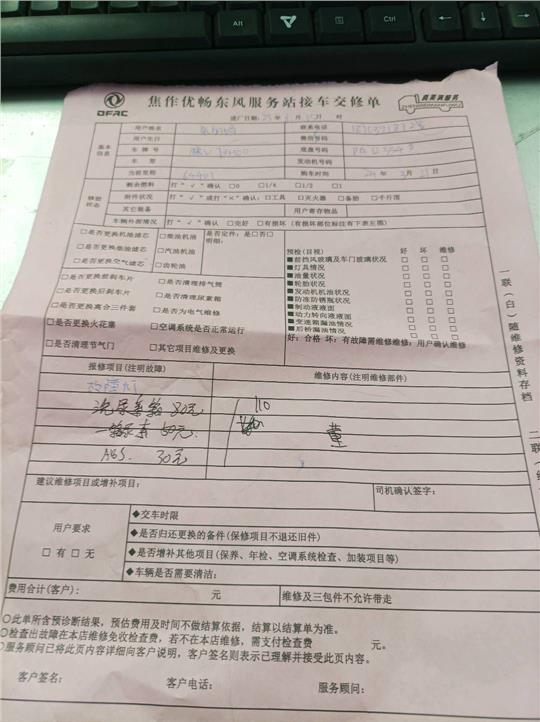 Alt
Ctrl
DFAC
焦作优畅东风服务站接车交修单
真要满服务
进厂日期: 年 月 日
基本信息
用户姓名
联系电话
用户生日
微信号码
车牌号
底盘号码
车型
发动机号码
当前里程 64401
购车时间 24年 月21日
剩余燃料 打“√”确认 □0 □1/4 □1/2 □1
附件状况 打“√”或打“×”确认:□工具 □灭火器 □备胎 □千斤顶
其它装备
用户寄存物品
车辆外部情况 打“√”确认 □完好 □有损坏(有损坏部位标注右下表主图)
□是否更换机油滤芯 □柴油机油 是否定件:是□否□
□是否更换柴油滤芯 □汽油机油 明细:
□是否更换空气滤芯 □齿轮油
□是否更换前刹车片 □是否清理排气筒
□是否更换后刹车片 □是否清理尿素箱
□是否更换离合三件套 □是否为电气维修
□是否更换火花塞 □空调系统是否正常运行
□是否清理节气门 □其它项目维修及更换
预检(目视) 好 坏 维修
■前挡风玻璃及车门玻璃状况 □ □ □
■灯具情况 □ □ □
■油量状况 □ □ □
■轮胎状况 □ □ □
■发动机机油状况 □ □ □
■防冻防锈瓶状况 □ □ □
■制动液液面 □ □ □
■动力转向液液面 □ □ □
■变速箱漏油情况 □ □ □
■后桥漏油情况 □ □ □
好:合格 坏:有故障需维修维修:用户确认维修
报修项目(注明故障)
维修内容(注明维修部件)
故障灯
洗尿素箱 80元
110
尿素 元
ABS. 30元
董
建议维修项目或增补项目:
司机确认签字:
用户要求
□有□无
◆交车时限
◆是否归还更换的备件(保修项目不退还旧件)
◆是否增补其他项目(保养、年检、空调系统检查、加装项目等)
◆车辆是否需要清洁:
费用合计(客户): 元
维修及三包件不允许带走
○此单所含预诊断结果,预估费用及时间不做结算依据,结算以结算单为准。
○检查出故障在本店维修免收检查费,若不在本店维修,需支付检查费 元。
○服务顾问已将此页内容详细向客户说明,客户签名则表示已理解并接受此页内容。
客户签名: 客户电话: 服务顾问:
一联(白)随维修资料存档
二联